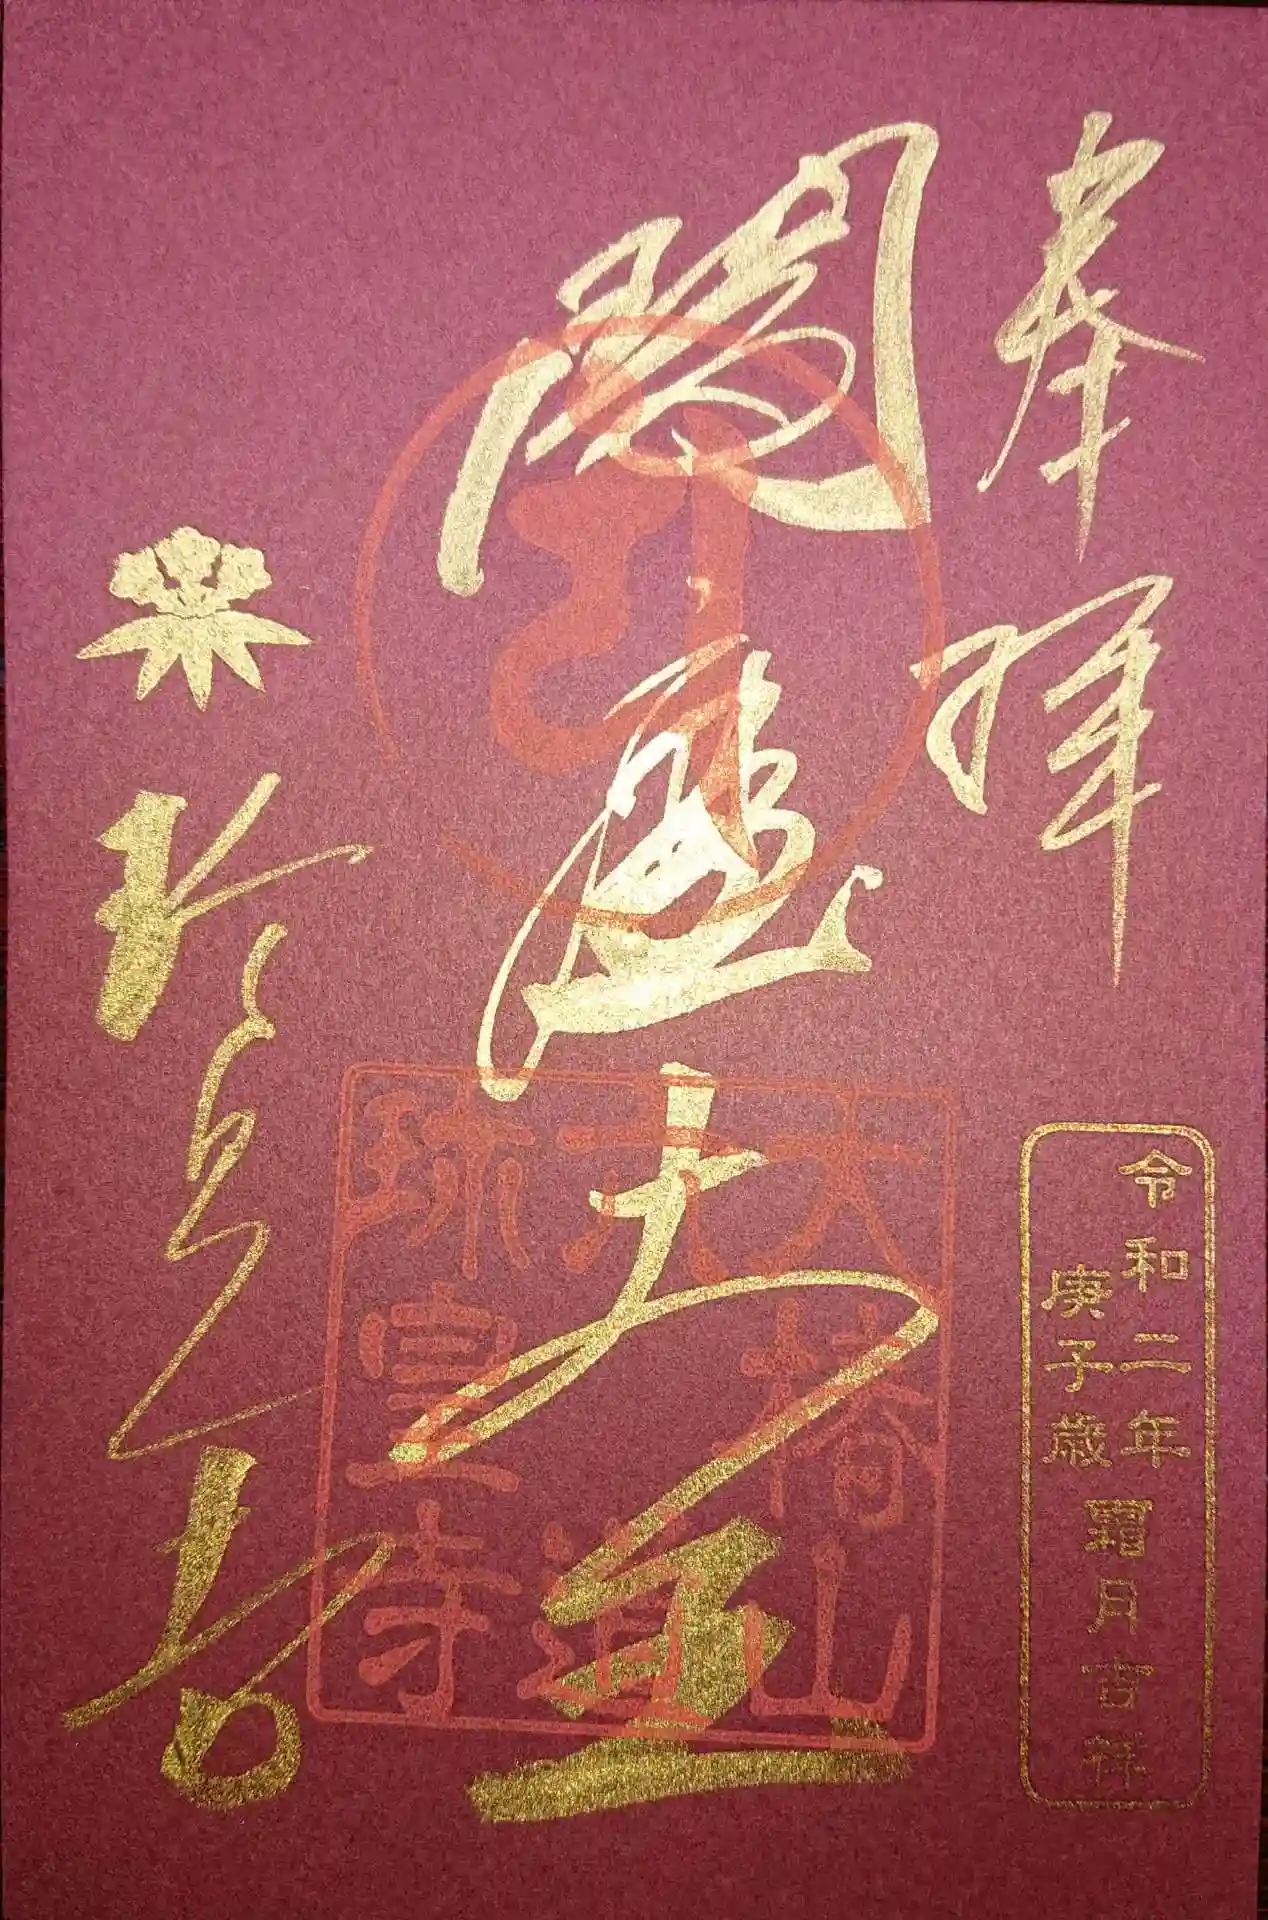 奉拝
令和二年
庚子歳
霜月吉祥
閻魔大王
大椿山
六道
珍皇寺